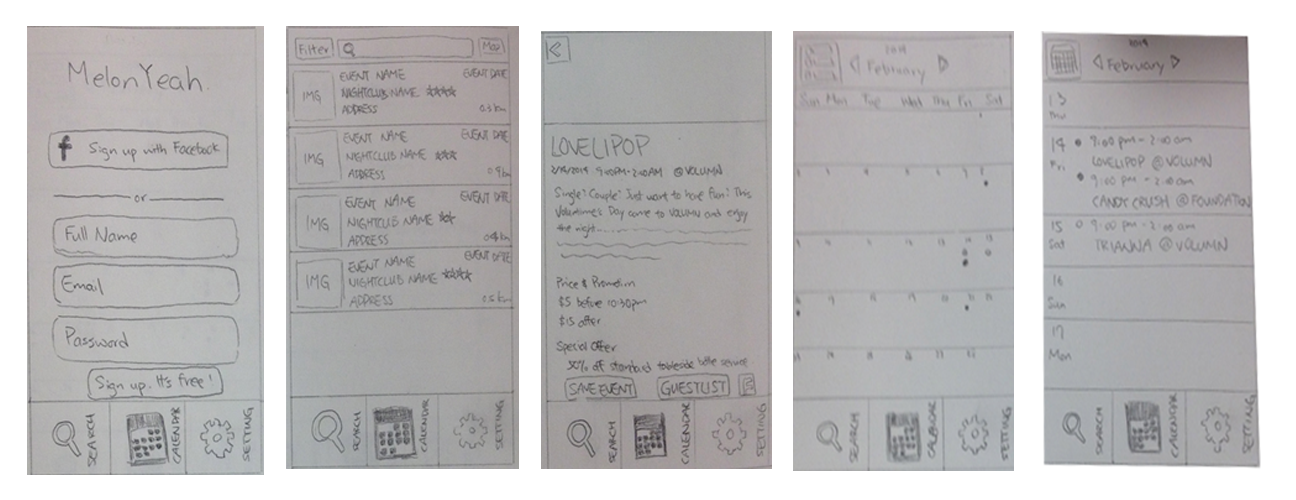 MelonYeah.
f Sign up with Facebook
or
Full Name
Email
Password
Sign up. It's free!
SEARCH
CALENDAR
SETTING
Filter
Map
IMG
EVENT NAME EVENT DATE
NIGHTCLUB NAME ★★★★
ADDRESS 0.3 km
IMG
EVENT NAME EVENT DATE
NIGHTCLUB NAME ★★★
ADDRESS
IMG
EVENT NAME EVENT DATE
NIGHTCLUB NAME ★★
ADDRESS
IMG
EVENT NAME EVENT DATE
NIGHTCLUB NAME ★★★★
ADDRESS
SEARCH
CALENDAR
SETTING
<
LOVELIPOP
2/14/2014 9:00PM-2:00AM @VOLUMN
Single? Couple? Just want to have fun? This
Valentine's Day come to VOLUMN and enjoy
the night....
Price & Promotion
$5 before 10:30pm
$15 after
Special Offer
50% off standard tableside bottle service
SAVE EVENT
GUESTLIST
SEARCH
CALENDAR
SETTING
2014
February
Sun Mon Tue Wed Thu Fri Sat
SEARCH
CALENDAR
SETTING
2014
February
13
Thu
14 9:00 pm - 2:00 am
Fri LOVELIPOP @VOLUMN
9:00 pm - 2:00 am
CANDY CRUSH @ FOUNDATION
15 9:00 pm - 2:00 am
Sat TRIANNA @ VOLUMN
16
Sun
17
Mon
SEARCH
CALENDAR
SETTING